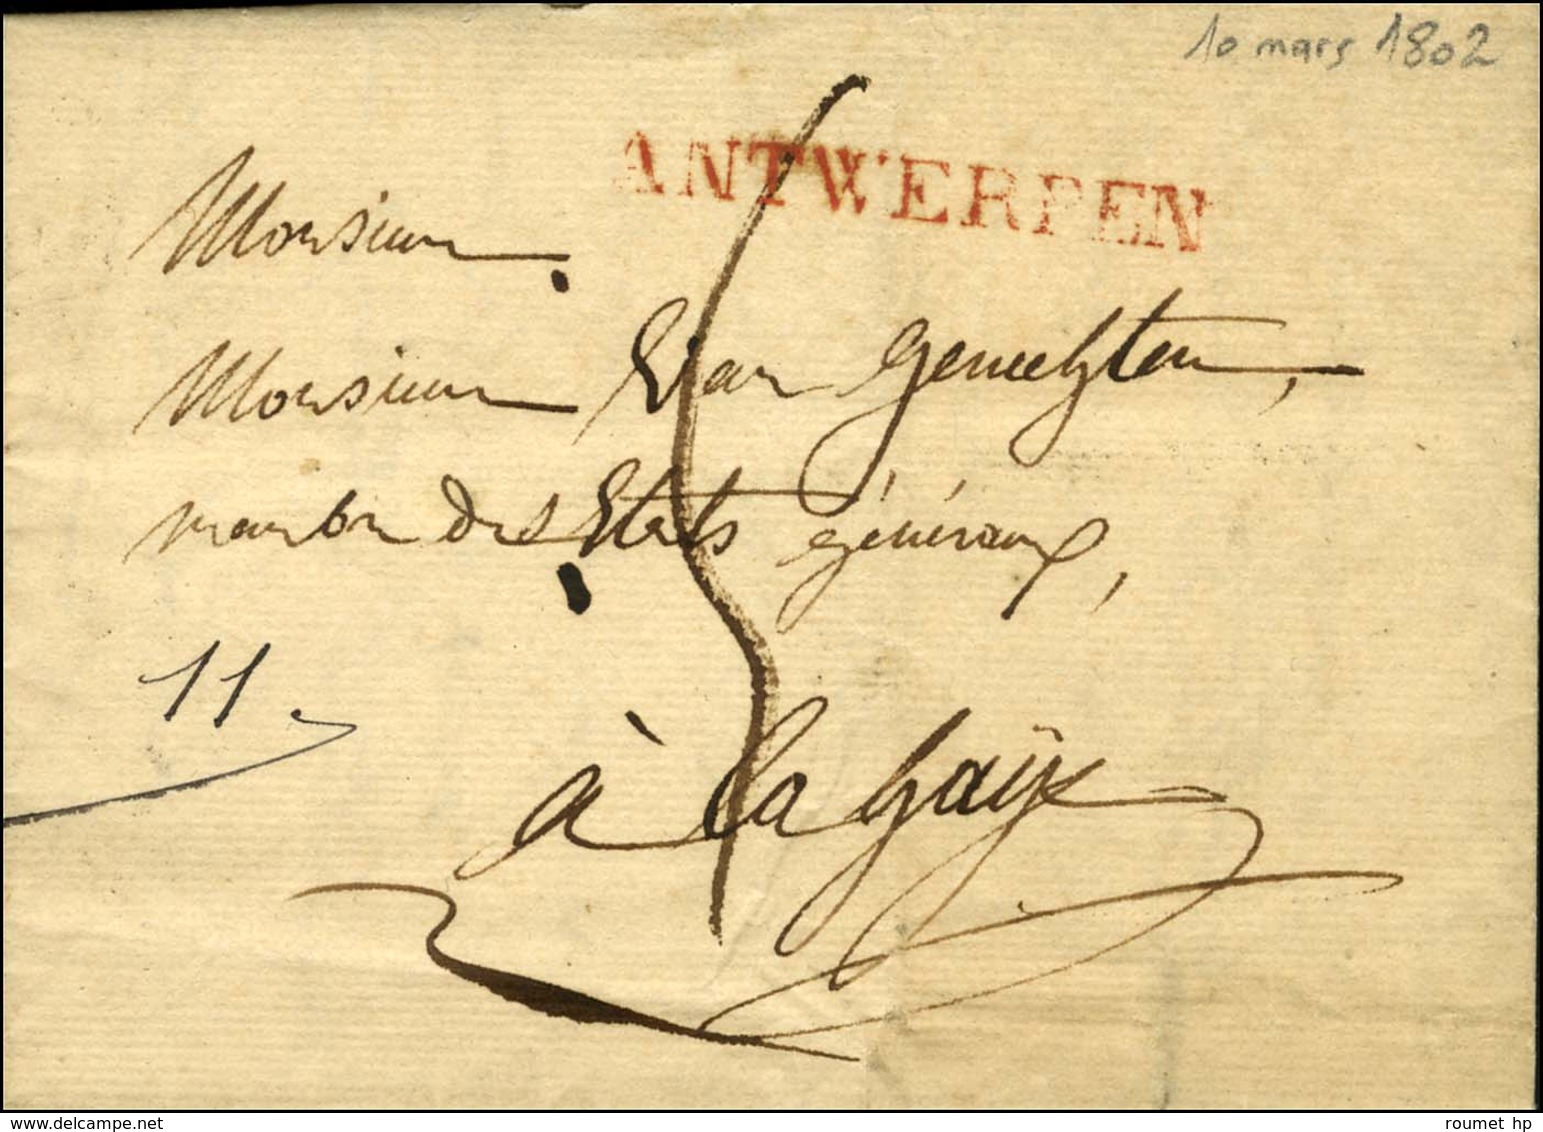 10 mars 1802
ANTWERPEN
Monsieur
Monsieur Van Genechten,
membre des Etats généraux,
11.
à la haÿe
www.delcampe.net
roumet hp